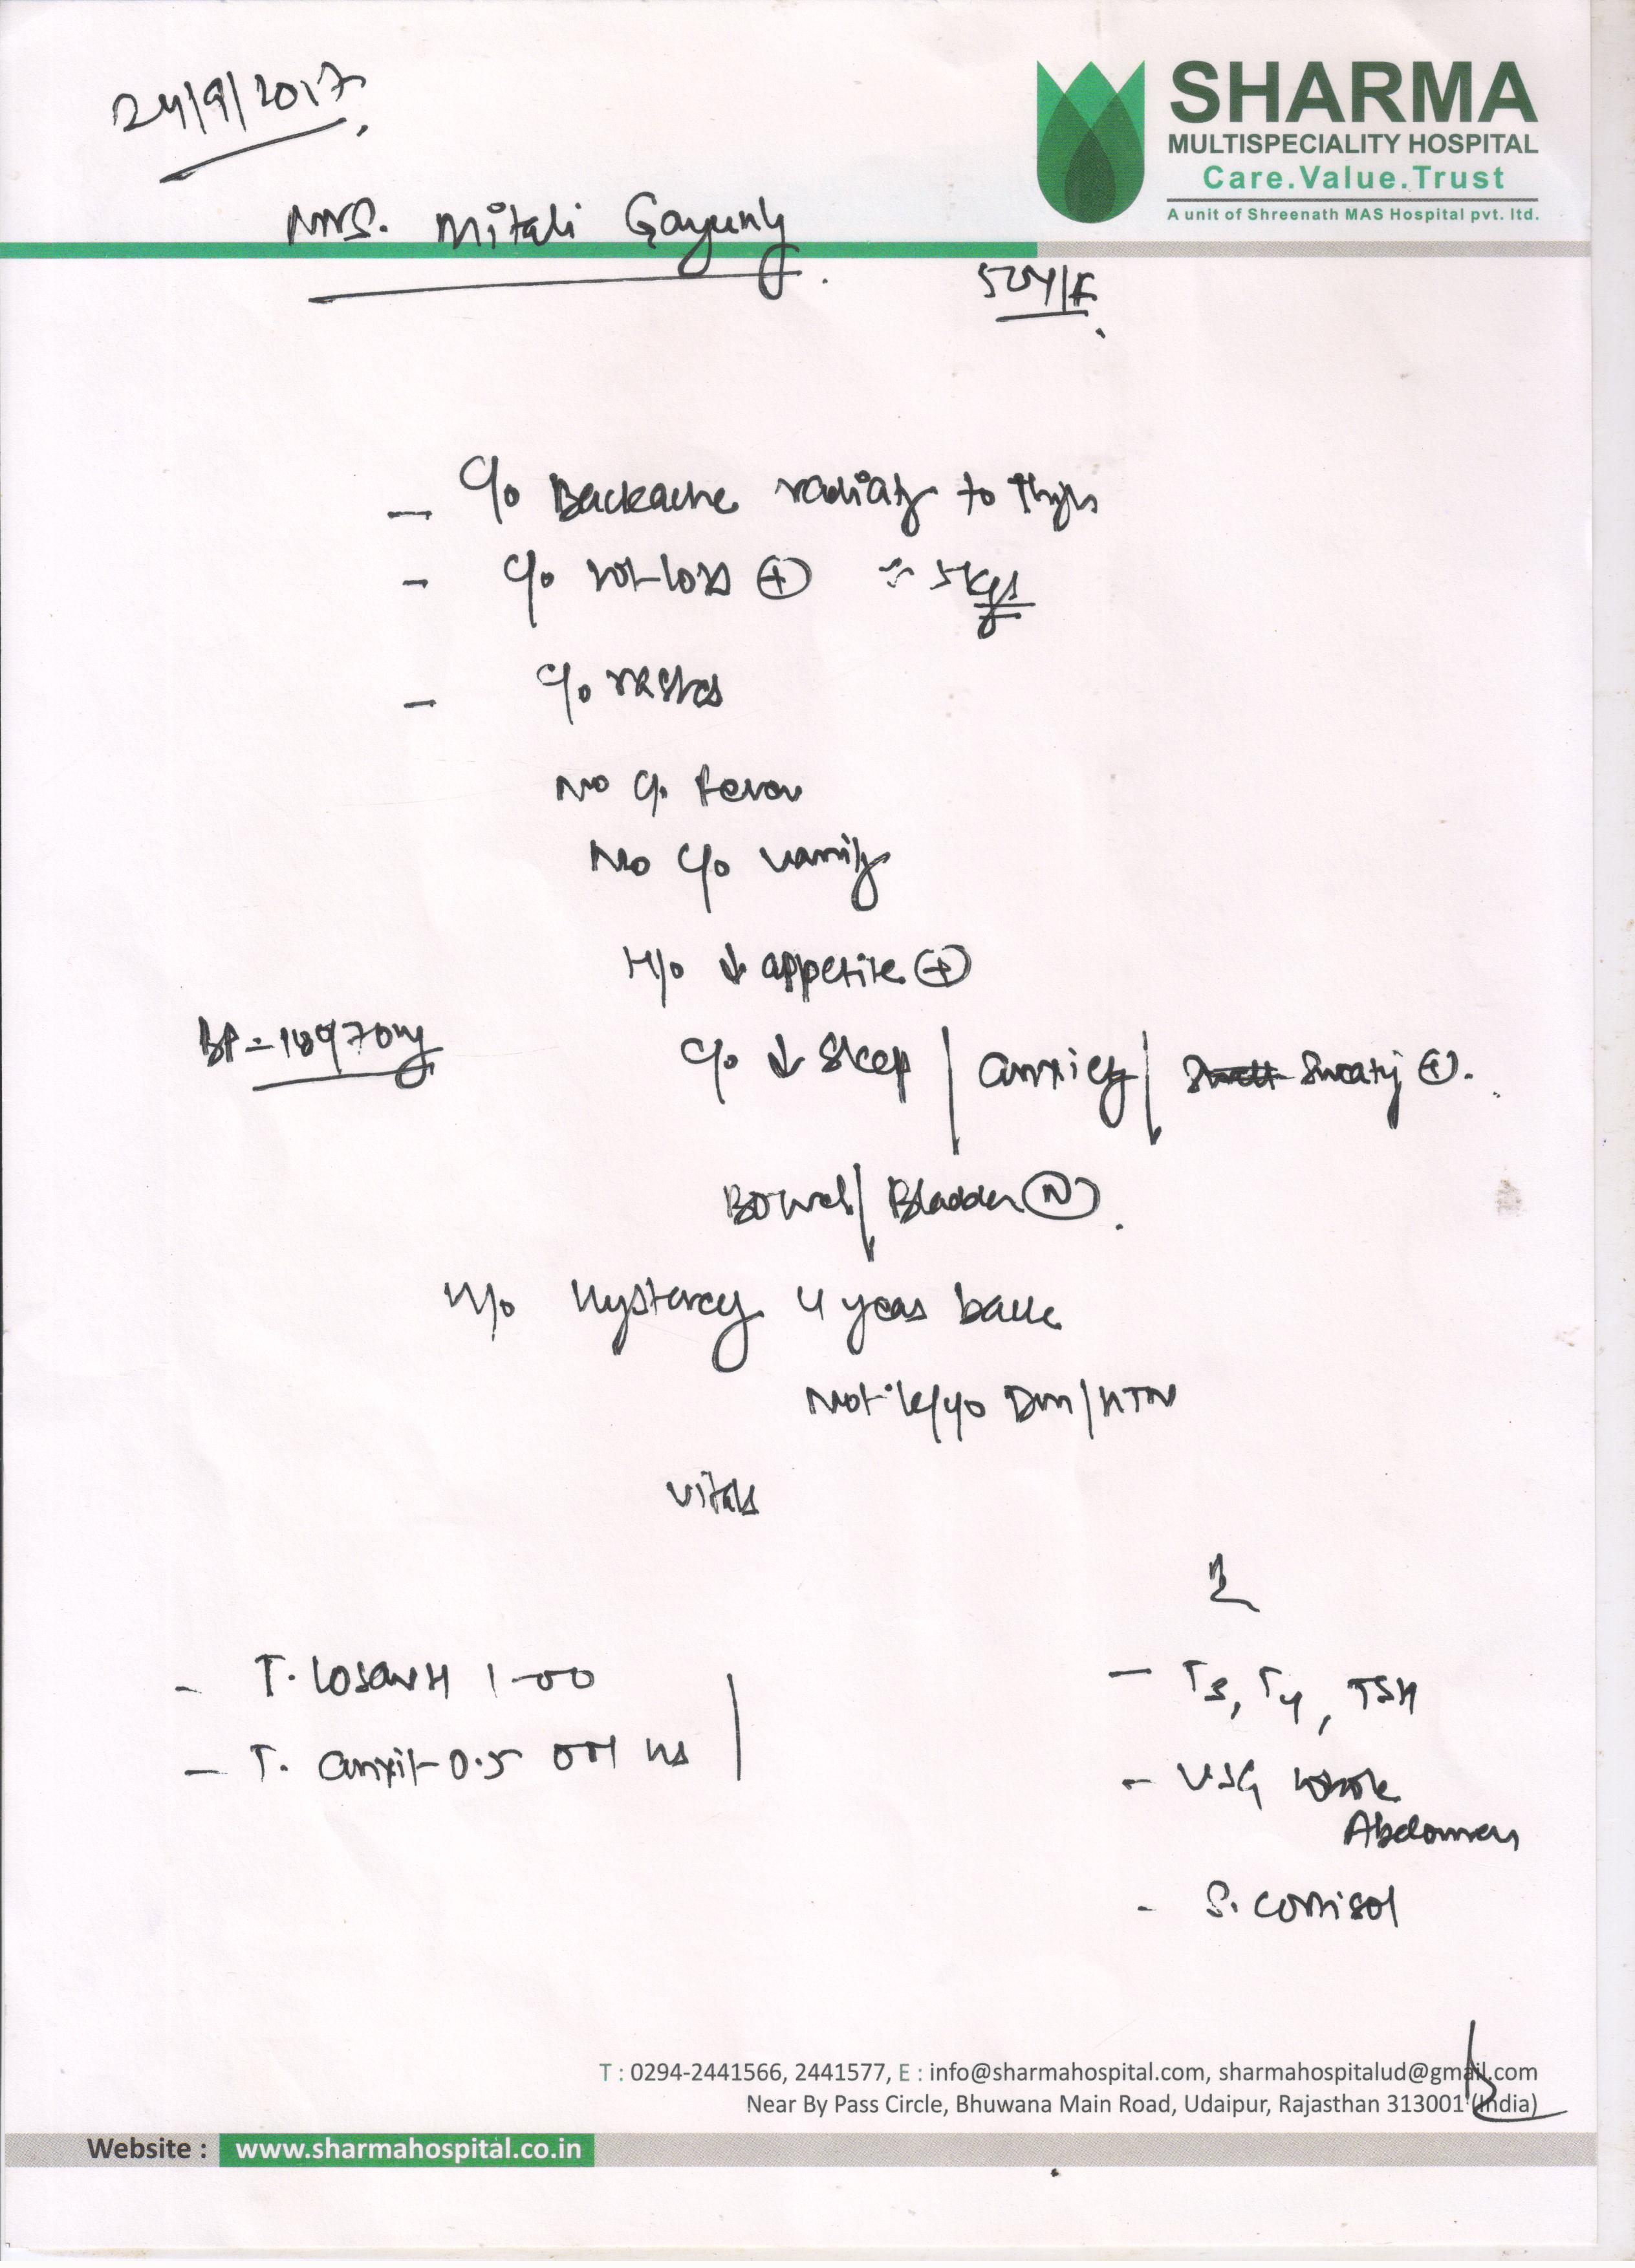 24/9/2017
SHARMA
MULTISPECIALITY HOSPITAL
Care.Value.Trust
A unit of Shreenath MAS Hospital pvt. ltd.
Mrs. Mitali
52Y/F
- c/o Backache radiating to thighs
- c/o wt-loss ⊕ ≈ 5kgs
- c/o
No c/o fever
No c/o vomiting
H/o ↓ appetite ⊕
BP =
c/o ↓ sleep / anxiety / sweating ⊕.
Bowel / Bladder Ⓝ.
H/o 4 years back
Not k/c/o DM / HTN
Vitals
- T. Losar H 1-00
- T. Anxit-0.5 001 HS
- T3, T4, TSH
- USG whole
Abdomen
- S. cortisol
T : 0294-2441566, 2441577, E : info@sharmahospital.com, sharmahospitalud@gmail.com
Near By Pass Circle, Bhuwana Main Road, Udaipur, Rajasthan 313001 (India)
Website : www.sharmahospital.co.in